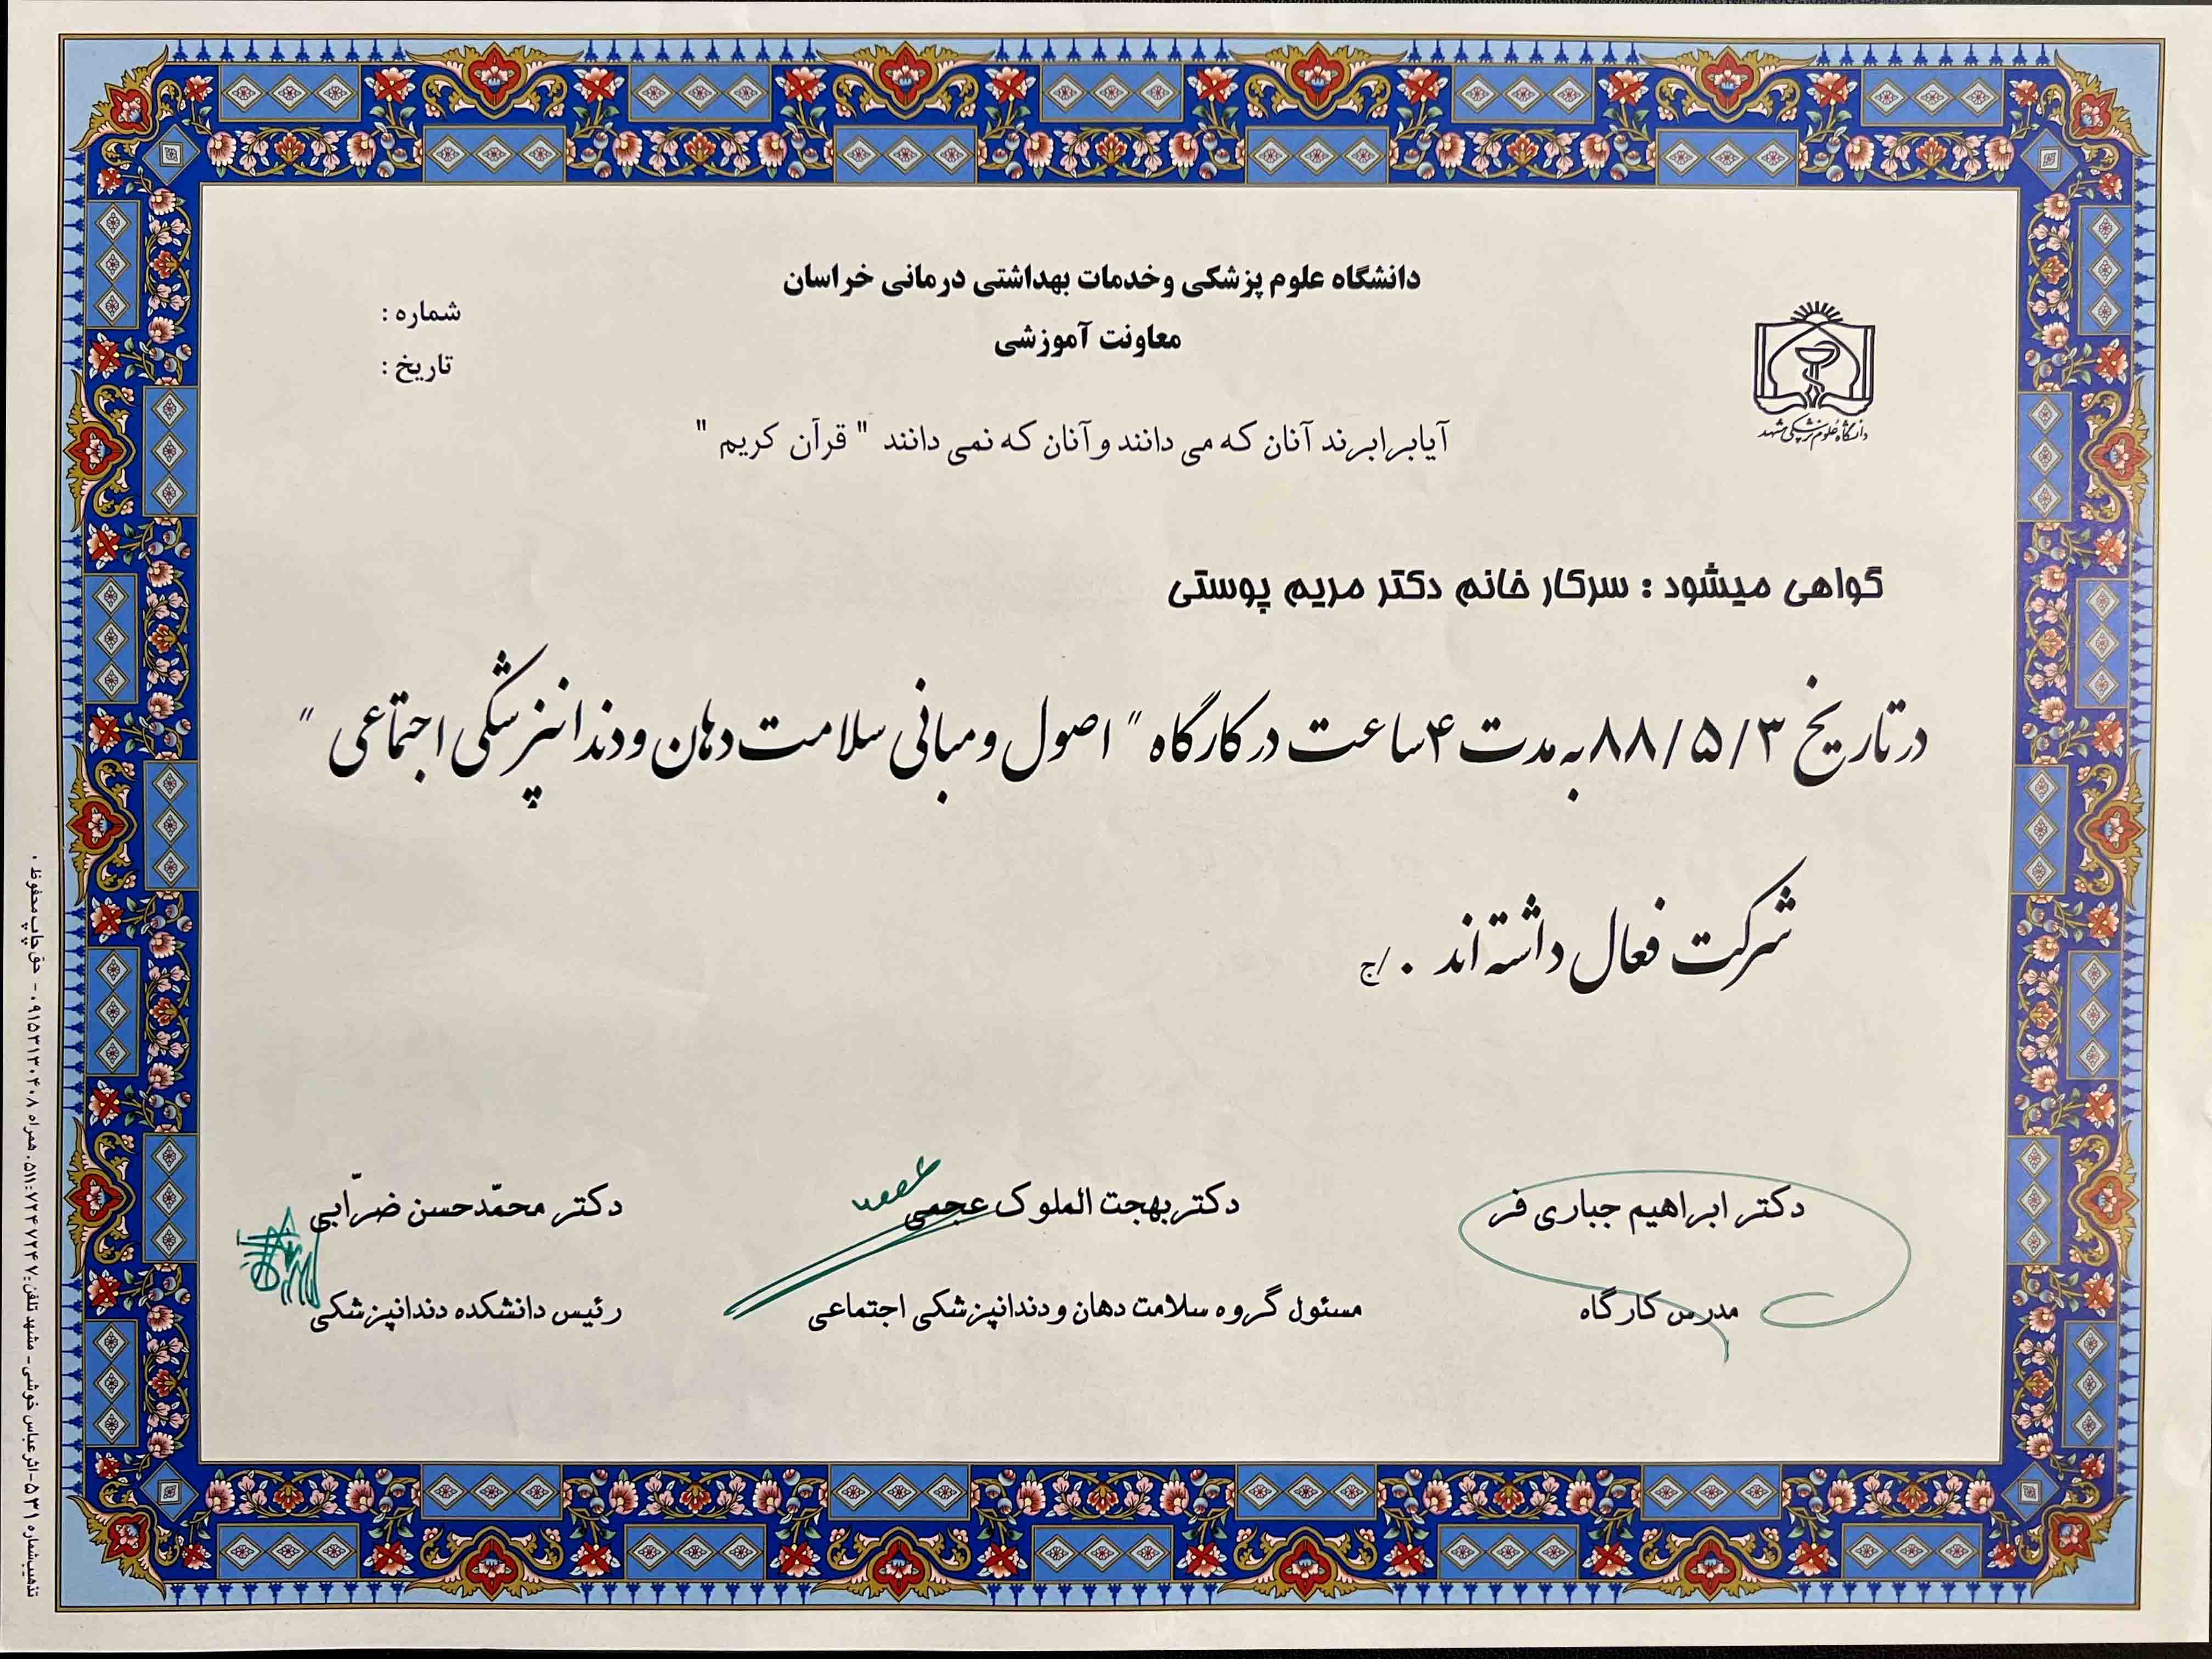 دانشگاه علوم پزشکی وخدمات بهداشتی درمانی خراسان
معاونت آموزشی
شماره :
تاریخ :
دانشگاه علوم پزشکی مشهد
آیابرابرند آنان که می دانند وآنان که نمی دانند " قرآن کریم "
گواهی میشود : سرکار خانم دکتر مریم پوستی
درتاریخ ۸۸/۵/۳ به مدت ۴ساعت درکارگاه " اصول ومبانی سلامت دهان ودندانپزشکی اجتماعی "
شرکت فعال داشته اند . /ج
دکتر ابراهیم جباری فر
مدرس کارگاه
دکتربهجت الملوک عجمی
مسئول گروه سلامت دهان ودندانپزشکی اجتماعی
دکتر محمّدحسن ضرّابی
رئیس دانشکده دندانپزشکی
تذهیب شماره ۵۳۱-اثرعباس خوشی - مشهد تلفن:۰۵۱۱:۷۲۴۷۲۴۷ همراه ۰۹۱۵۳۱۳۰۴۰۸ - حق چاپ محفوظ .